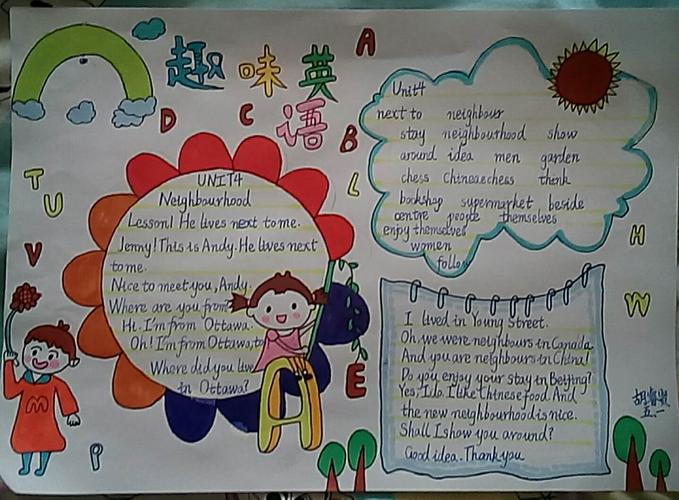 趣味英
语
A
D
C
B
T
U
L
V
H
W
E
P
UNIT4
Neighbourhood
Lesson1 He lives next to me.
Jenny! This is Andy. He lives next
to me.
Nice to meet you, Andy.
Where are you from?
Hi. I'm from Ottawa.
Oh! I'm from Ottawa, to
Where did you live
in Ottawa?
Unit4
next to neighbour
stay neighbourhood show
around idea men garden
chess Chinese chess think
bookshop supermarket beside
centre people themselves
enjoy themselves
women
follow
I lived in Young Street.
Oh, we were neighbours in Canada.
And you are neighbours in China!
Do you enjoy your stay in Beijing?
Yes, I do. I like Chinese food. And
the new neighbourhood is nice.
Shall I show you around?
Good idea. Thank you
五.一